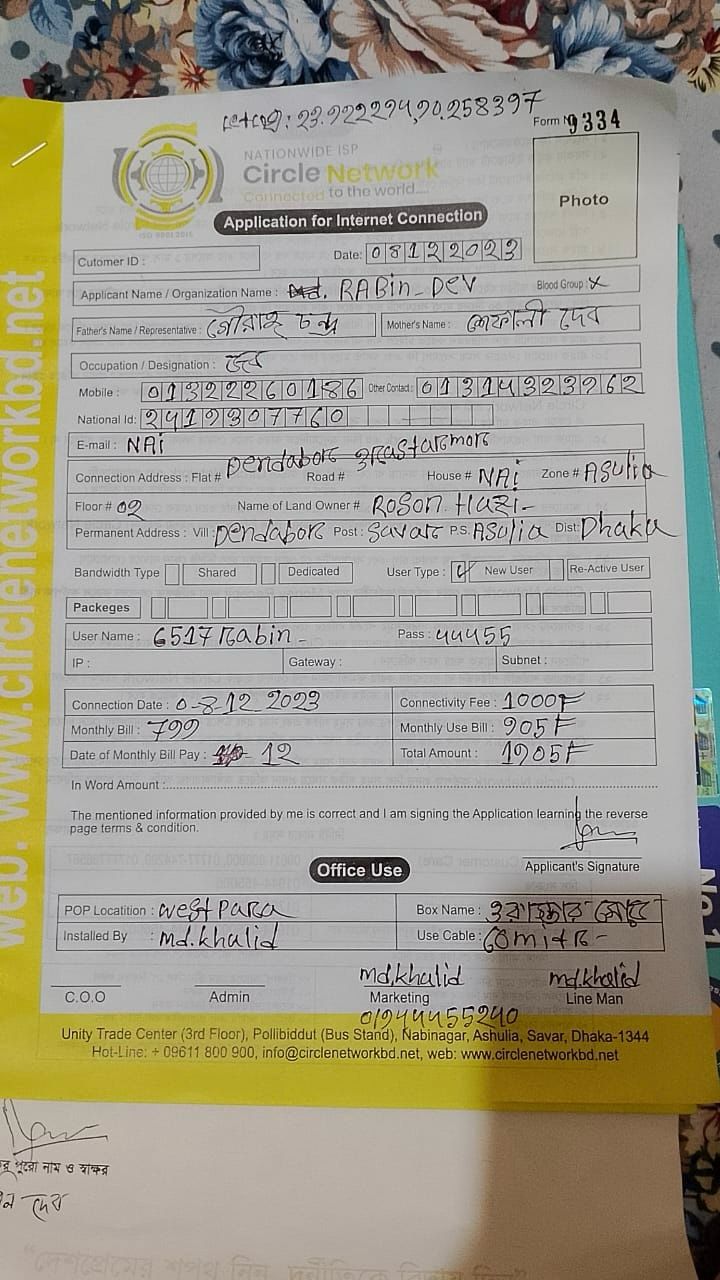 23.922294,90.258397
Form No 9334
NATIONWIDE ISP
Circle Network
Connected to the world....
ISO 9001:2015
Photo
Application for Internet Connection
Cutomer ID :
Date: 08122023
Applicant Name / Organization Name : RABin-Dev Blood Group: x
Father's Name / Representative : গৌরাঙ্গ চন্দ্র Mother's Name : শেফালী দেব
Occupation / Designation : জব
Mobile : 01322260186 Other Contact : 01314323962
National Id: 2419307760
E-mail : NAi
Connection Address : Flat # Dendabor Road # House # NAi Zone # ASulia
Floor # 02 Name of Land Owner # ROSON. HAZi-
Permanent Address : Vill : Dendabor Post : Savar P.S. ASulia Dist: Dhaka
Bandwidth Type Shared Dedicated User Type : New User Re-Active User
Packeges
User Name : 6517 Rabin - Pass : 44455
IP : Gateway : Subnet :
Connection Date : 0-8-12 2023 Connectivity Fee : 1000F
Monthly Bill : 799 Monthly Use Bill : 905F
Date of Monthly Bill Pay : 12 Total Amount : 1905F
In Word Amount :
The mentioned information provided by me is correct and I am signing the Application learning the reverse
page terms & condition.
Applicant's Signature
Office Use
POP Locatition : west para Box Name :
Installed By : md.khalid Use Cable : 60mitR-
md,khalid md.khalid
C.O.O Admin Marketing Line Man
01944455240
Unity Trade Center (3rd Floor), Pollibiddut (Bus Stand), Nabinagar, Ashulia, Savar, Dhaka-1344
Hot-Line: + 09611 800 900, info@circlenetworkbd.net, web: www.circlenetworkbd.net
web. www.circlenetworkbd.net
পুরো নাম ও স্বাক্ষর
দেব